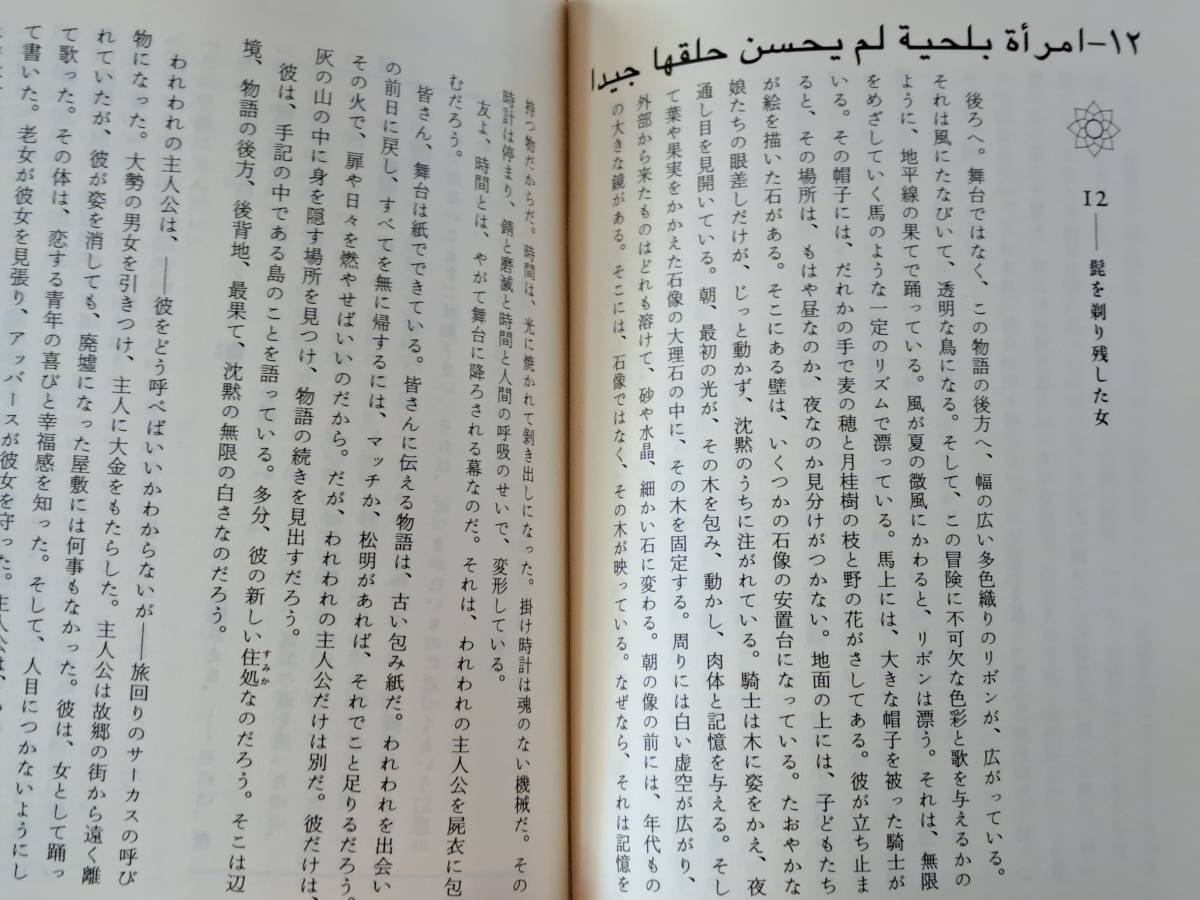 ١٢-امرأة بلحية لم يحسن حلقها جيدا
12――髭を剃り残した女
後ろへ。舞台ではなく、この物語の後方へ、幅の広い多色織りのリボンが、広がっている。
それは風にたなびいて、透明な鳥になる。そして、この冒険に不可欠な色彩と歌を与えるかの
ように、地平線の果てで踊っている。風が夏の微風にかわると、リボンは漂う。それは、無限
をめざしていく馬のような一定のリズムで漂っている。馬上には、大きな帽子を被った騎士が
いる。その帽子には、だれかの手で麦の穂と月桂樹の枝と野の花がさしてある。彼が立ち止ま
ると、その場所は、もはや昼なのか、夜なのか見分けがつかない。地面の上には、子どもたち
が絵を描いた石がある。そこにある壁は、いくつかの石像の安置台になっている。たおやかな
娘たちの眼差しだけが、じっと動かず、沈黙のうちに注がれている。騎士は木に姿をかえ、夜
通し目を見開いている。朝、最初の光が、その木を包み、動かし、肉体と記憶を与える。そし
て葉や果実をかかえた石像の大理石の中に、その木を固定する。周りには白い虚空が広がり、
外部から来たものはどれも溶けて、砂や水晶、細かい石に変わる。朝の像の前には、年代もの
の大きな鏡がある。そこには、石像ではなく、その木が映っている。なぜなら、それは記憶を
持つ物だからだ。時間は、光に焼かれて剝き出しになった。掛け時計は魂のない機械だ。その
時計は停まり、錆と磨滅と時間と人間の呼吸のせいで、変形している。
友よ、時間とは、やがて舞台に降ろされる幕なのだ。それは、われわれの主人公を屍衣に包
むだろう。
皆さん、舞台は紙でできている。皆さんに伝える物語は、古い包み紙だ。われわれを出会い
の前日に戻し、すべてを無に帰するには、マッチか、松明があれば、それでこと足りるだろう。
その火で、扉や日々を燃やせばいいのだから。だが、われわれの主人公だけは別だ。彼だけは、
灰の山の中に身を隠す場所を見つけ、物語の続きを見出すだろう。
彼は、手記の中である島のことを語っている。多分、彼の新しい住処すみかなのだろう。そこは辺
境、物語の後方、後背地、最果て、沈黙の無限の白さなのだろう。
われわれの主人公は、――彼をどう呼べばいいかわからないが――旅回りのサーカスの呼び
物になった。大勢の男女を引きつけ、主人に大金をもたらした。主人公は故郷の街から遠く離
れていたが、彼が姿を消しても、廃墟になった屋敷には何事もなかった。彼は、女として踊っ
て歌った。その体は、恋する青年の喜びと幸福感を知った。そして、人目につかないようにし
て書いた。老女が彼女を見張り、アッバースが彼女を守った。主人公は、